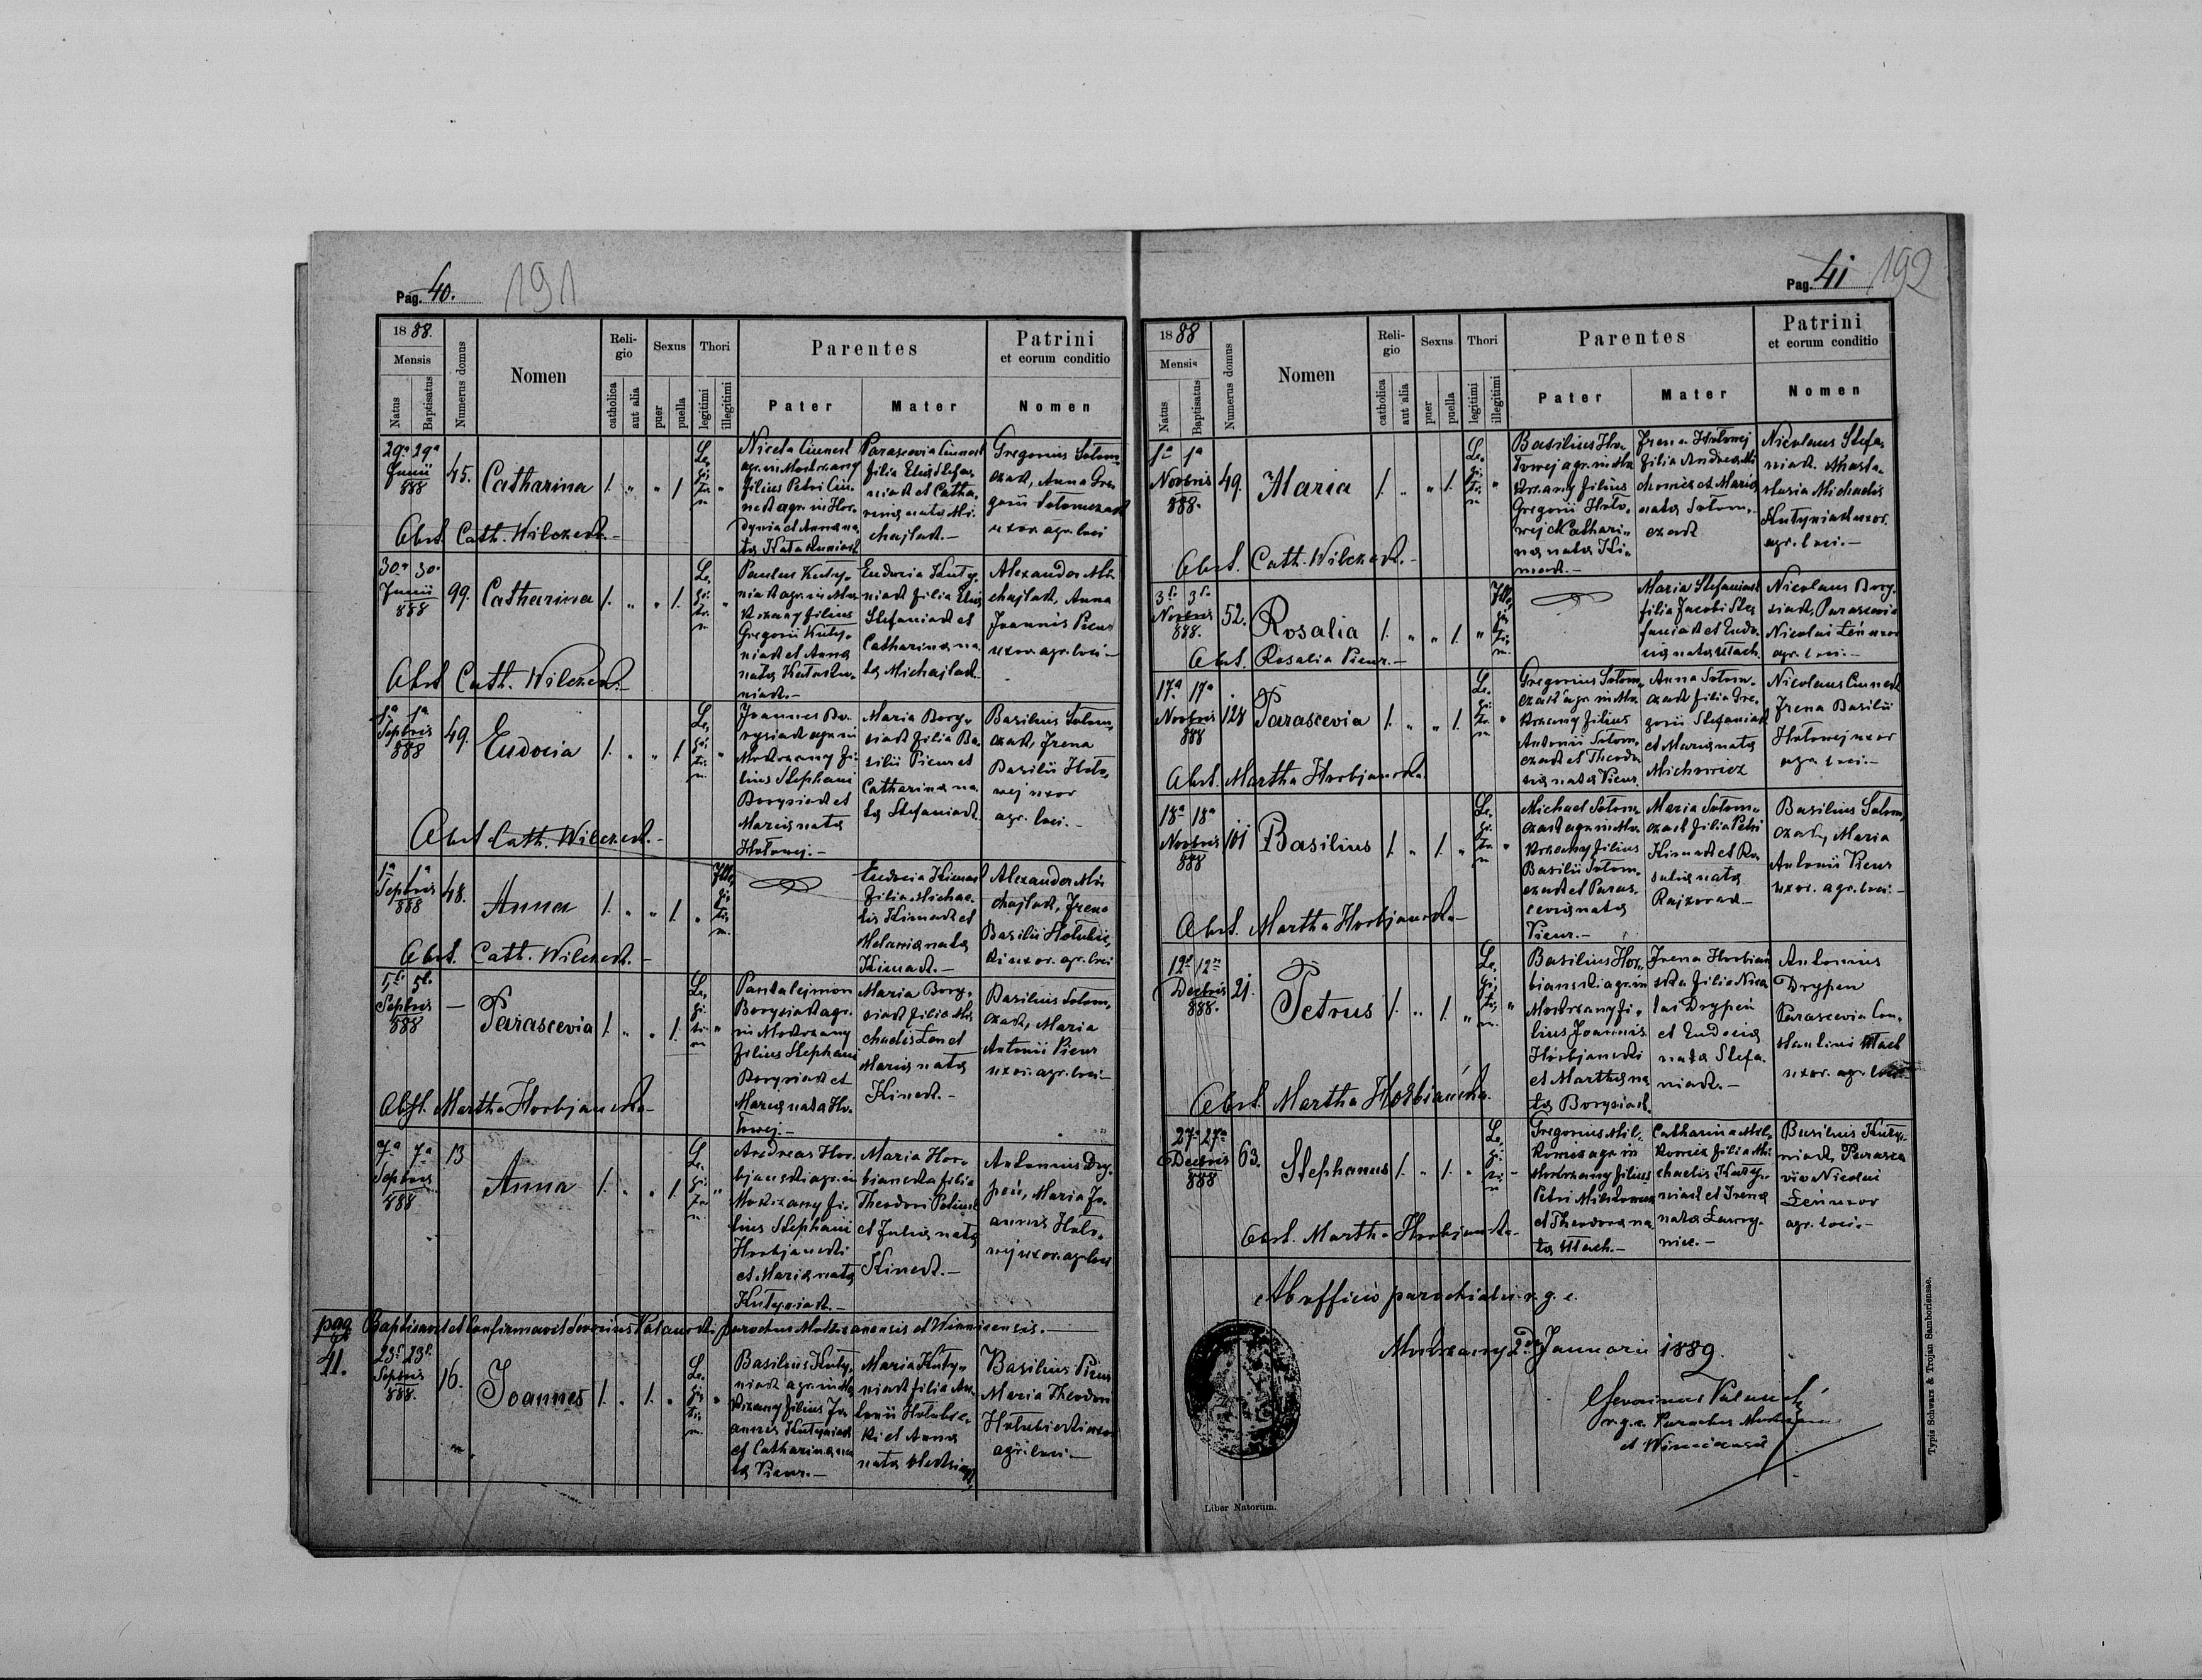 Pag. 40. 191
1888.
Mensis
Natus
Baptisatus
Numerus domus
Nomen
Religio
catholica
aut alia
Sexus
puer
puella
Thori
legitimi
illegitimi
Parentes
Pater
Mater
Patrini
et eorum conditio
Nomen
29a 29a
Junii
888
45.
Catharina
1. " " 1
Le,
gi
ti,
m
"
agr. in Mokrzany
filius Petri
agr. in
et Anna na,
ta
Parascevia
filia
et Catha,
rina nata Mi,
chajlak.—
Gregorius Sołom,
czak, Anna Gre,
gorii Sołomczak
uxor agr. loci
Abst. Cath. Wilczek.—
30a 30a
Junii
888
99.
Catharina
1. " " 1.
Le,
gi,
ti,
m
"
Paulus Kuty,
niak agr. in Mo,
krzany filius
Gregorii Kuty,
niak et Anna
nata
niak.—
Eudocia Kuty,
niak filia
Stefaniak et
Catharina na,
ta Michajlak
Alexander Mi,
chajlak, Anna
Joannis Picur
uxor agr. loci—
Abst Cath. Wilczek.—
1a 1a
Septbris
888
49.
Eudocia
1. " " 1
Le,
gi,
ti,
m.
"
Joannes Bo,
rysiak agr. in
Mokrzany fi,
lius Stephani
Borysiak et
Maria nata
Hołowej.—
Maria Bory,
siak filia Ba,
silii Picur et
Catharina na,
ta Stefaniak.
Basilius Sołom,
czak, Irena
Basilii Hoło,
wej uxor
agr. loci.—
Abst Cath. Wilczek.—
1a 1a
Septbris
888
48.
Anna
1. " " 1. "
Ille,
gi
ti,
m.
Eudocia Kimak
filia Michae,
lis Kimak et
Melania nata
Kimak.—
Alexander Mi,
chajlak, Irena
Basilii Hołubic,
ki uxor. agr. loci
Abst. Cath. Wilczek.—
5a 5a
Septbris
888
—
Parascevia
1. " " 1.
Le,
gi.
ti,
m
"
Pantalejmon
Borysiak agr.
in Mokrzany
filius Stephani
Borysiak et
Maria nata Ho,
łowej.—
Maria Bory,
siak filia Mi,
chaelis Łen et
Maria nata
Kinek.—
Basilius Sołom,
czak, Maria
Antonii Picur
uxor. agr. loci—
Abst. Martha Horbjanska—
7a 7a
Septbris
888
13
Anna
1. " " 1.
Le,
gi,
ti,
m.
"
Andreas Hor,
bjanski agr. in
Mokrzany fi,
lius Stephani
Horbjanski
et Maria nata
Kutyniak.—
Maria Hor,
bianska filia
Theodori
et Julia nata
Kinek.—
Antonius Dry,
peń, Maria Jo,
annis Hoło,
wej uxor. agr. loci
pag
41.
Baptisavit et Confirmavit Severinus parochus Mokrzanensis et Winnicensis.—
23a 23a
Septbris
888.
16.
Joannes
1. " 1. "
Le,
gi,
ti,
m.
"
Basilius Kuty,
niak agr. in Mo,
krzany filius Jo,
annis Kutyniak
et Catharina na,
ta Picur.—
Maria Kuty,
niak filia An,
tonii Hołubic,
ki et Anna
nata
Basilius Picur
Maria Theodori
Hołubicki uxor
agr. loci—
Pag. 41 192
1888
Mensis
Natus
Baptisatus
Numerus domus
Nomen
Religio
catholica
aut alia
Sexus
puer
puella
Thori
legitimi
illegitimi
Parentes
Pater
Mater
Patrini
et eorum conditio
Nomen
1a 1a
Novbris
888.
49.
Maria
1. " " 1.
Le,
gi
ti,
m
"
Basilius Ho,
łowej agr. in Mo,
krzany filius
Gregorii Hoło,
wej et Cathari,
na nata Ki,
mak.—
Irena Hołowej
filia Andreae Mi,
chowicz et Maria
nata Sołom,
czak
Nicolaus Stefa,
niak. Anasta,
stasia Michaelis
Kutyniak uxor.
agr. loci.—
Abst. Cath. Wilczek.—
3a 3a
Novbris
888.
52.
Rosalia
1. " " 1. "
Ille,
gi,
ti,
m.
Maria Stefaniak
filia Jacobi Ste,
faniak et Eudo,
cia nata Mach.
Nicolaus Bory,
siak, Parascevia
Nicolai Łeń uxor
agr. loci.—
Abst. Rosalia Picur.—
17a 17a
Novbris
888
124
Parascevia
1. " " 1.
Le.
gi
ti,
m
"
Gregorius Sołom,
czak agr. in Mo,
krzany filius
Antonii Sołom,
czak et Theodo,
sia nata Picur
Anna Sołom,
czak filia Gre,
gorii Stefaniak
et Maria nata
Michowicz
Nicolaus
Irena Basilii
Hołowej uxor
agr. loci.—
Abst. Martha Horbjanska
18a 18a
Novbris
888
101
Basilius
1. " 1. "
Le.
gi.
ti,
m
"
Michael Sołom,
czak agr. in Mo,
krzany filius
Basilii Sołom,
czak et Paras,
cevia nata
Picur.—
Maria Sołom,
czak filia Petri
Kimak et Ro,
salia nata
Basilius Sołom,
czak, Maria
Antonii Picur
uxor. agr. loci—
Abst. Martha Horbjanska—
12a 12a
Decbris
888.
21.
Petrus
1. " 1. "
Le,
gi,
ti,
m.
"
Basilius Hor,
bianski agr. in
Mokrzany fi,
lius Joannis
Horbjanski
et Martha na,
ta Borysiak.
Irena Horbian
ska filia Nico,
lai Drypeń
et Eudocia
nata Stefa,
niak.—
Antonius
Drypen
Parascevia Con,
stantini Mach
uxor. agr. loci
Abst. Martha Horbiańska.
27a 27a
Decbris
888
63.
Stephanus
1. " 1. "
Le,
gi.
ti,
m
"
Gregorius Mil,
kowicz agr. in
Mokrzany filius
Petri Milkowicz
et Theodora na,
ta Mach.—
Catharina Mil,
kowicz filia Mi,
chaelis Kuty,
niak et Irena
nata Ławry,
niec.—
Basilius Kuty,
niak, Parasce
via Nicolai
Łeń uxor
agr. loci.—
Abst. Martha Horbjanska.
Ab officio parochiali r. g. c.
Mokrzany 2da Januarii 1889.
Severinus
r. g. c. Parochus
et
Liber Natorum.
Typis Schwarz & Trojan Samboriensae.